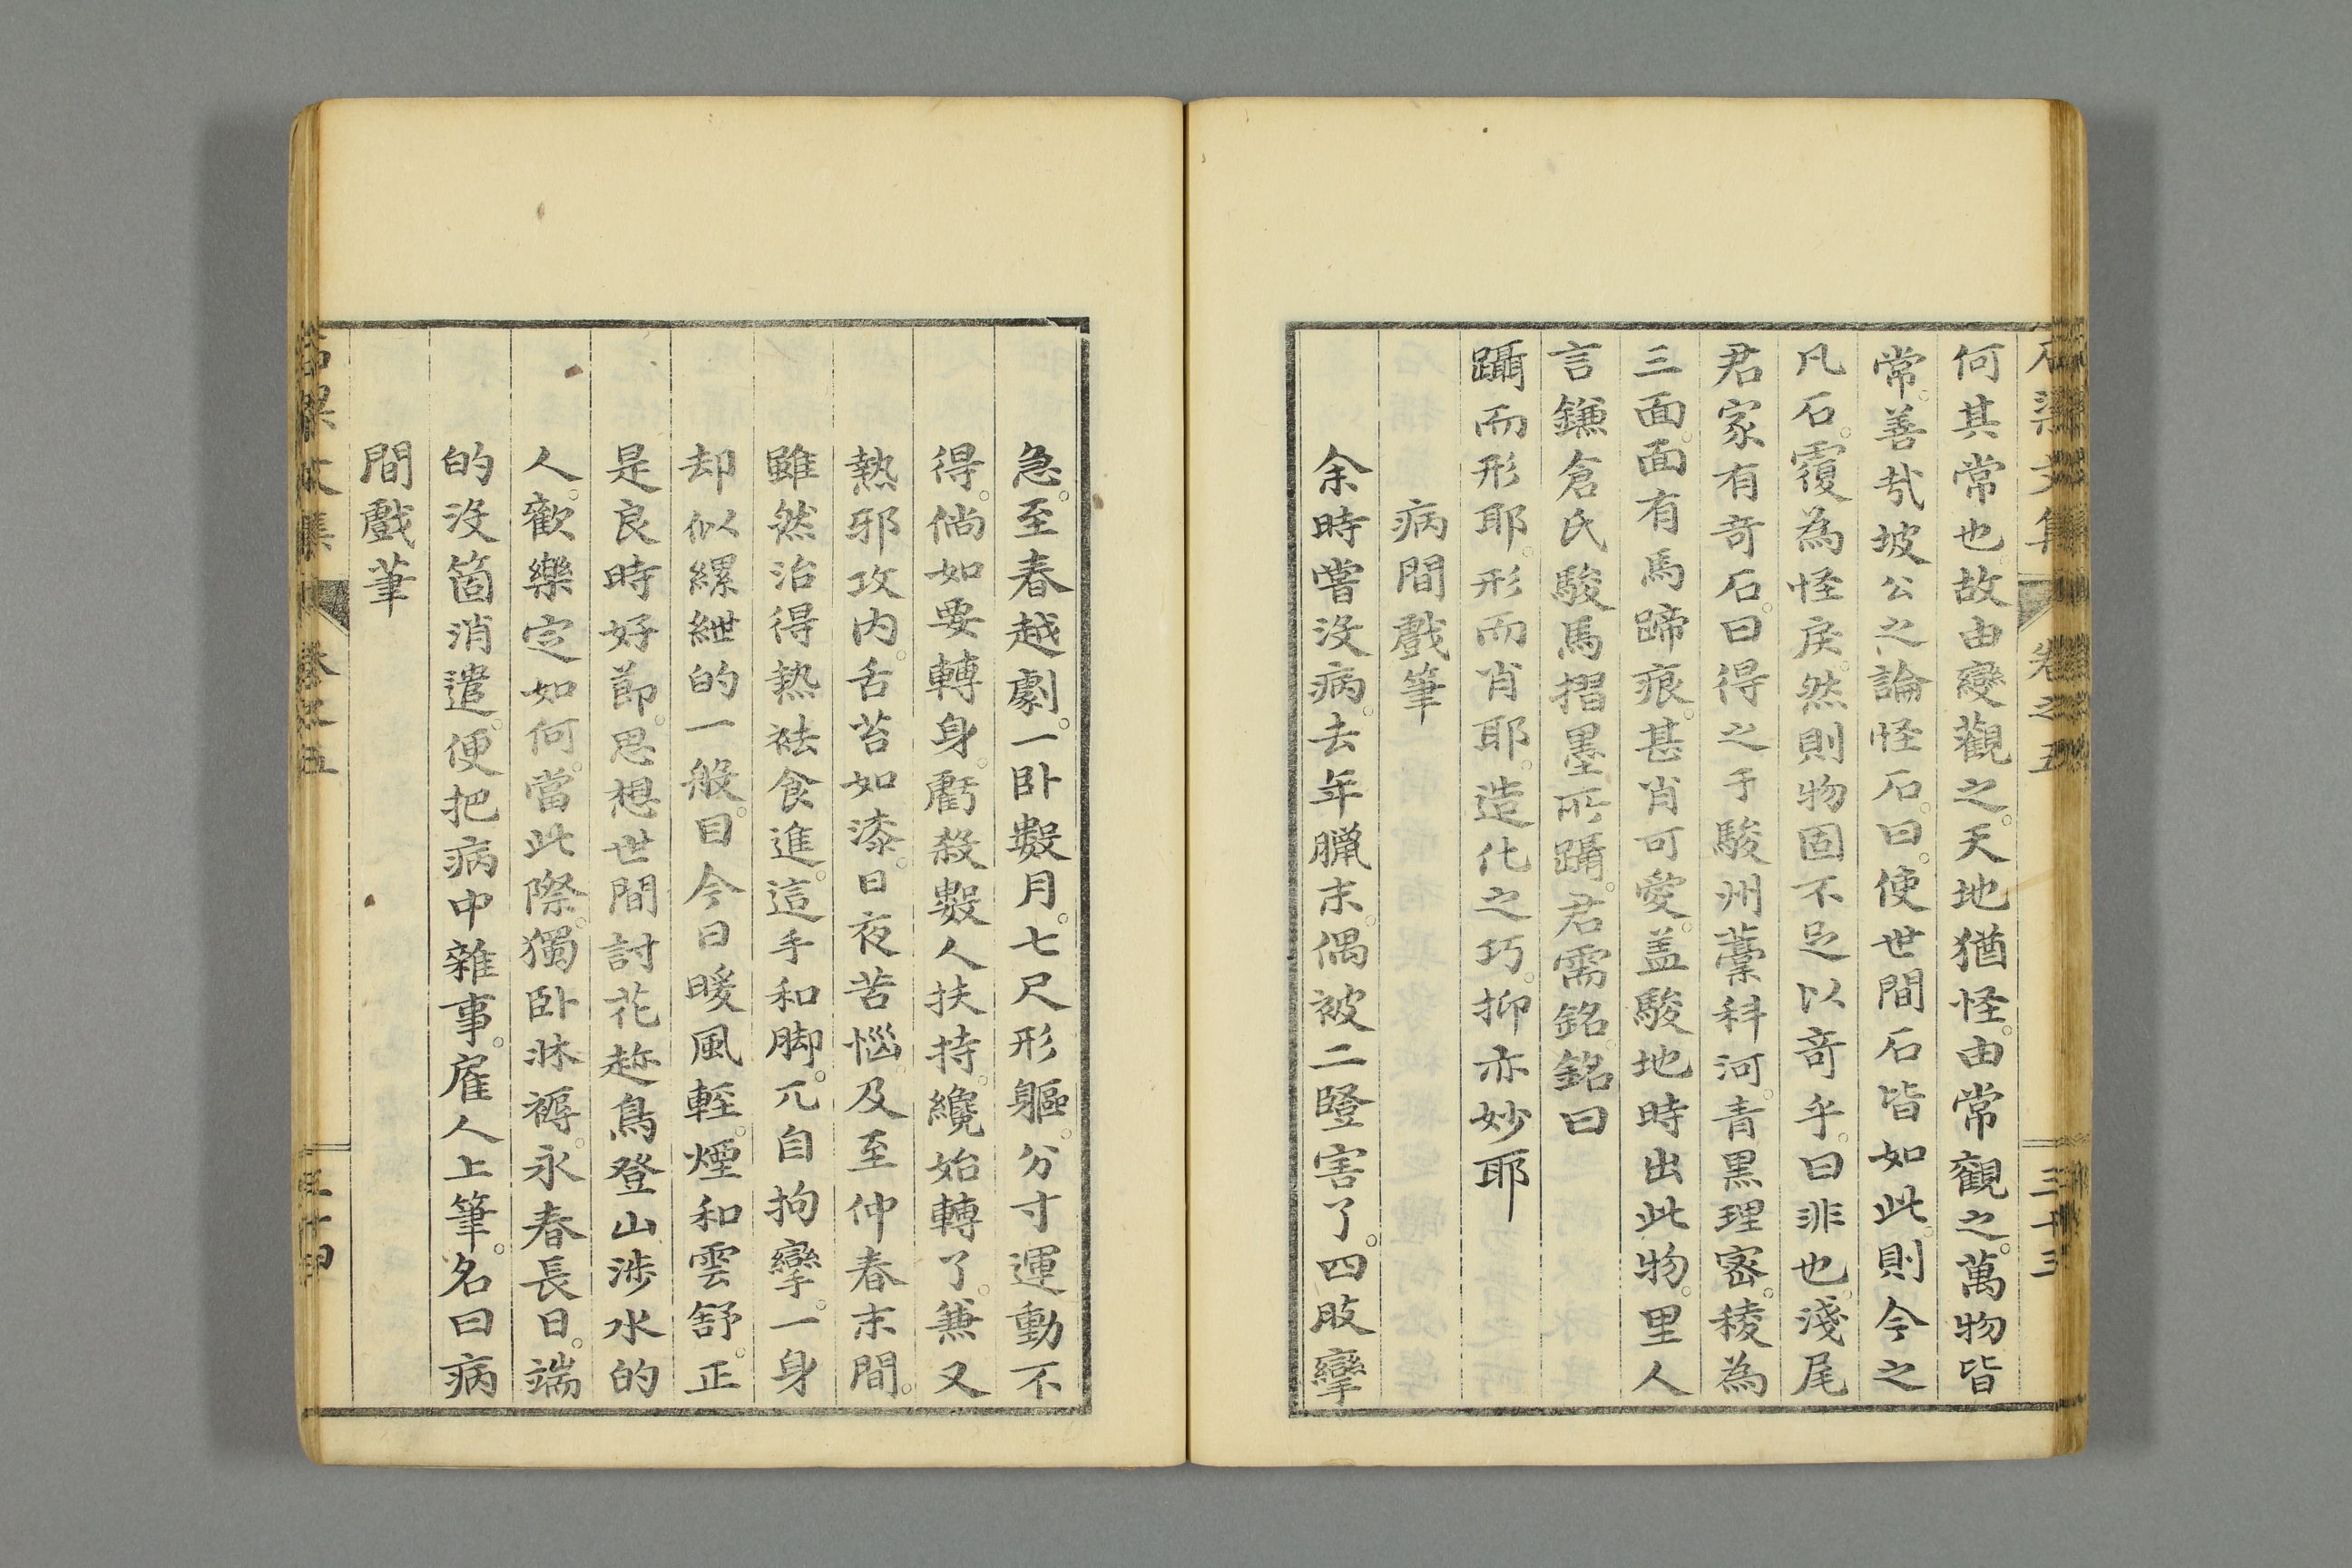 何其常也。故由變觀之。天地猶怪。由常觀之。萬物皆
常。善哉坡公之論怪石。曰。使世間石皆如此。則今之
凡石。覆為怪戾。然則物固不足以奇乎。曰非也。淺尾
君家有奇石。曰得之于駿州藁科河。青黒理密。稜為
三面。面有馬蹄痕。甚肖可愛。盖駿地時出此物。里人
言鎌倉氏駿馬摺墨所躡。君需銘。銘曰
躡而形耶。形而肖耶。造化之巧。抑亦妙耶
病間戲筆
余時嘗没病。去年臘末。偶被二豎害了。四肢攣
急。至春越劇。一卧數月。七尺形軀。分寸運動不
得。倘如要轉身。虧殺數人扶持。纔始轉了。兼又
熱邪攻内。舌苔如漆。日夜苦惱。及至仲春末間。
雖然治得熱祛食進。這手和脚。兀自拘攣。一身
却似縲紲的一般。目今日暖風輕。煙和雲舒。正
是良時好節。思想世間討花趂鳥登山渉水的
人。歡樂定如何。當此際。獨卧牀褥。永春長日。端
的没箇消遣。便把病中雜事。雇人上筆。名曰病
間戲筆
卷之五
三十三